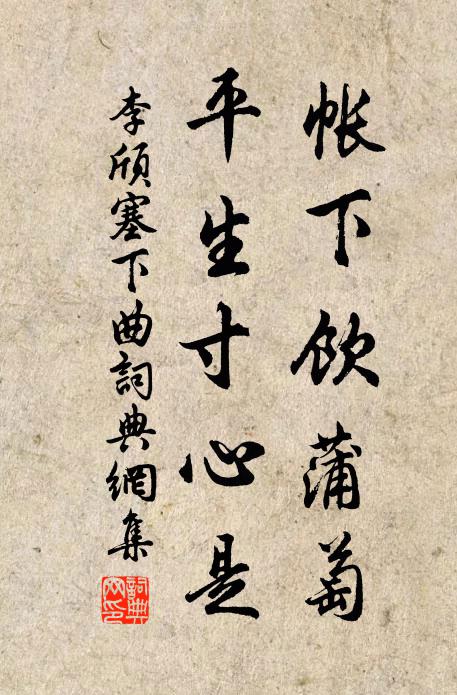 帐下饮蒲萄
平生寸心是
李颀塞下曲詞典網集
詞典
网印